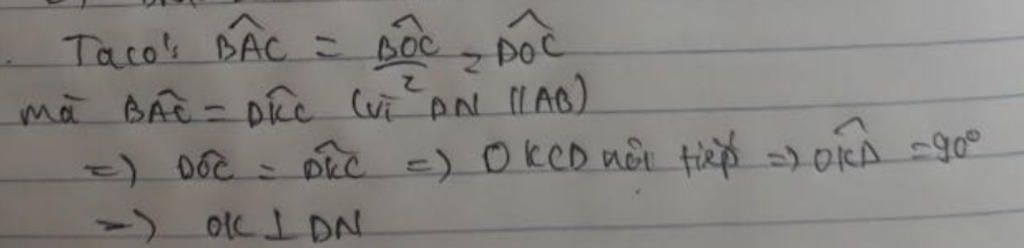 Ta có: \widehat{BAC} = \frac{\widehat{BOC}}{2} = \widehat{DOC}
mà \widehat{BAC} = \widehat{DKC} (vì DN // AB)
=> \widehat{DOC} = \widehat{DKC} => OKCD nội tiếp => \widehat{OKD} = 90°
=> OK ⊥ DN